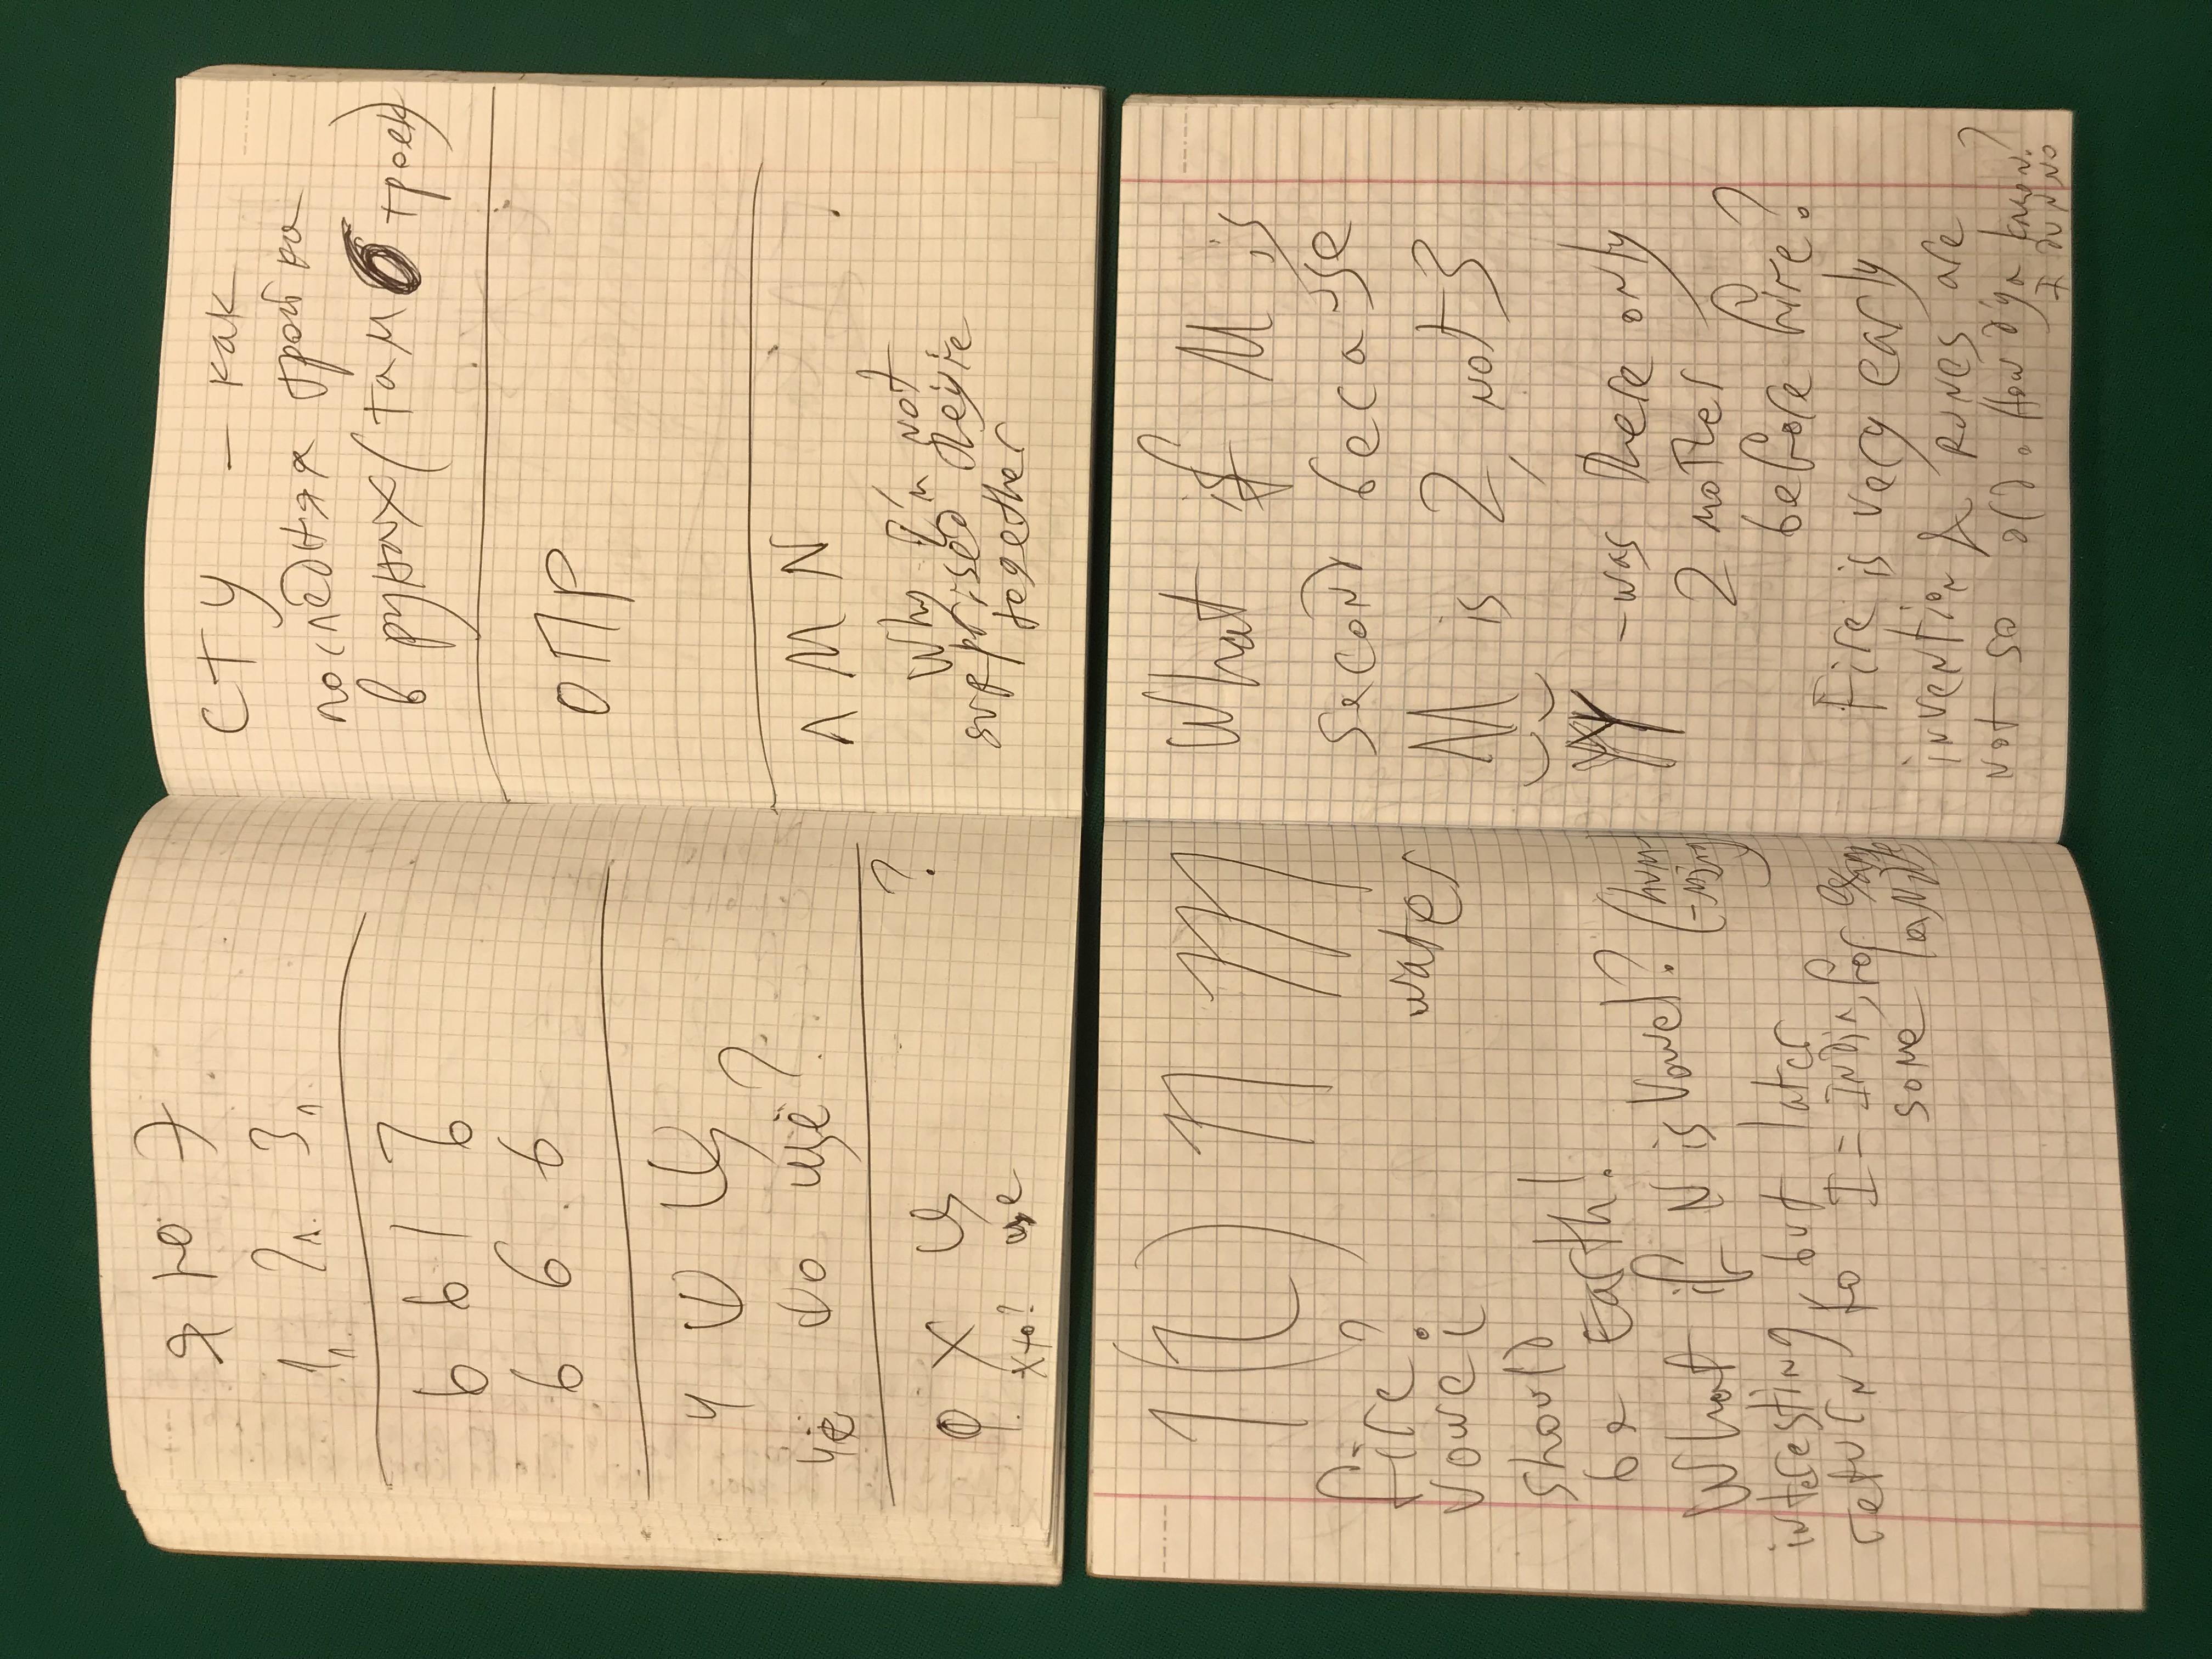 Я Ю Э
1л. 2л. 3л.
Ь Ы Ъ
Ь Б Ъ
Ч Ш Щ
чё шо щё?
?
Ф Х Ц
хто? це
СТУ — как
последняя тройка
в рунах (там 6 троек)
ОПР
Л М N
Why I'm not
surprised they're
together
1 (ι) 11 111
fire? water
vowel
should
be Earth!
What if N is vowel? (hum-
-ming)
interesting, but later
return to I = Indin, for example
some lands
What if M is
second because
M is 2, not 3
YY - was there only
2 mother
before fire?
Fire is very early
invention & runes are
not so old. How d'ya know?
I dunno